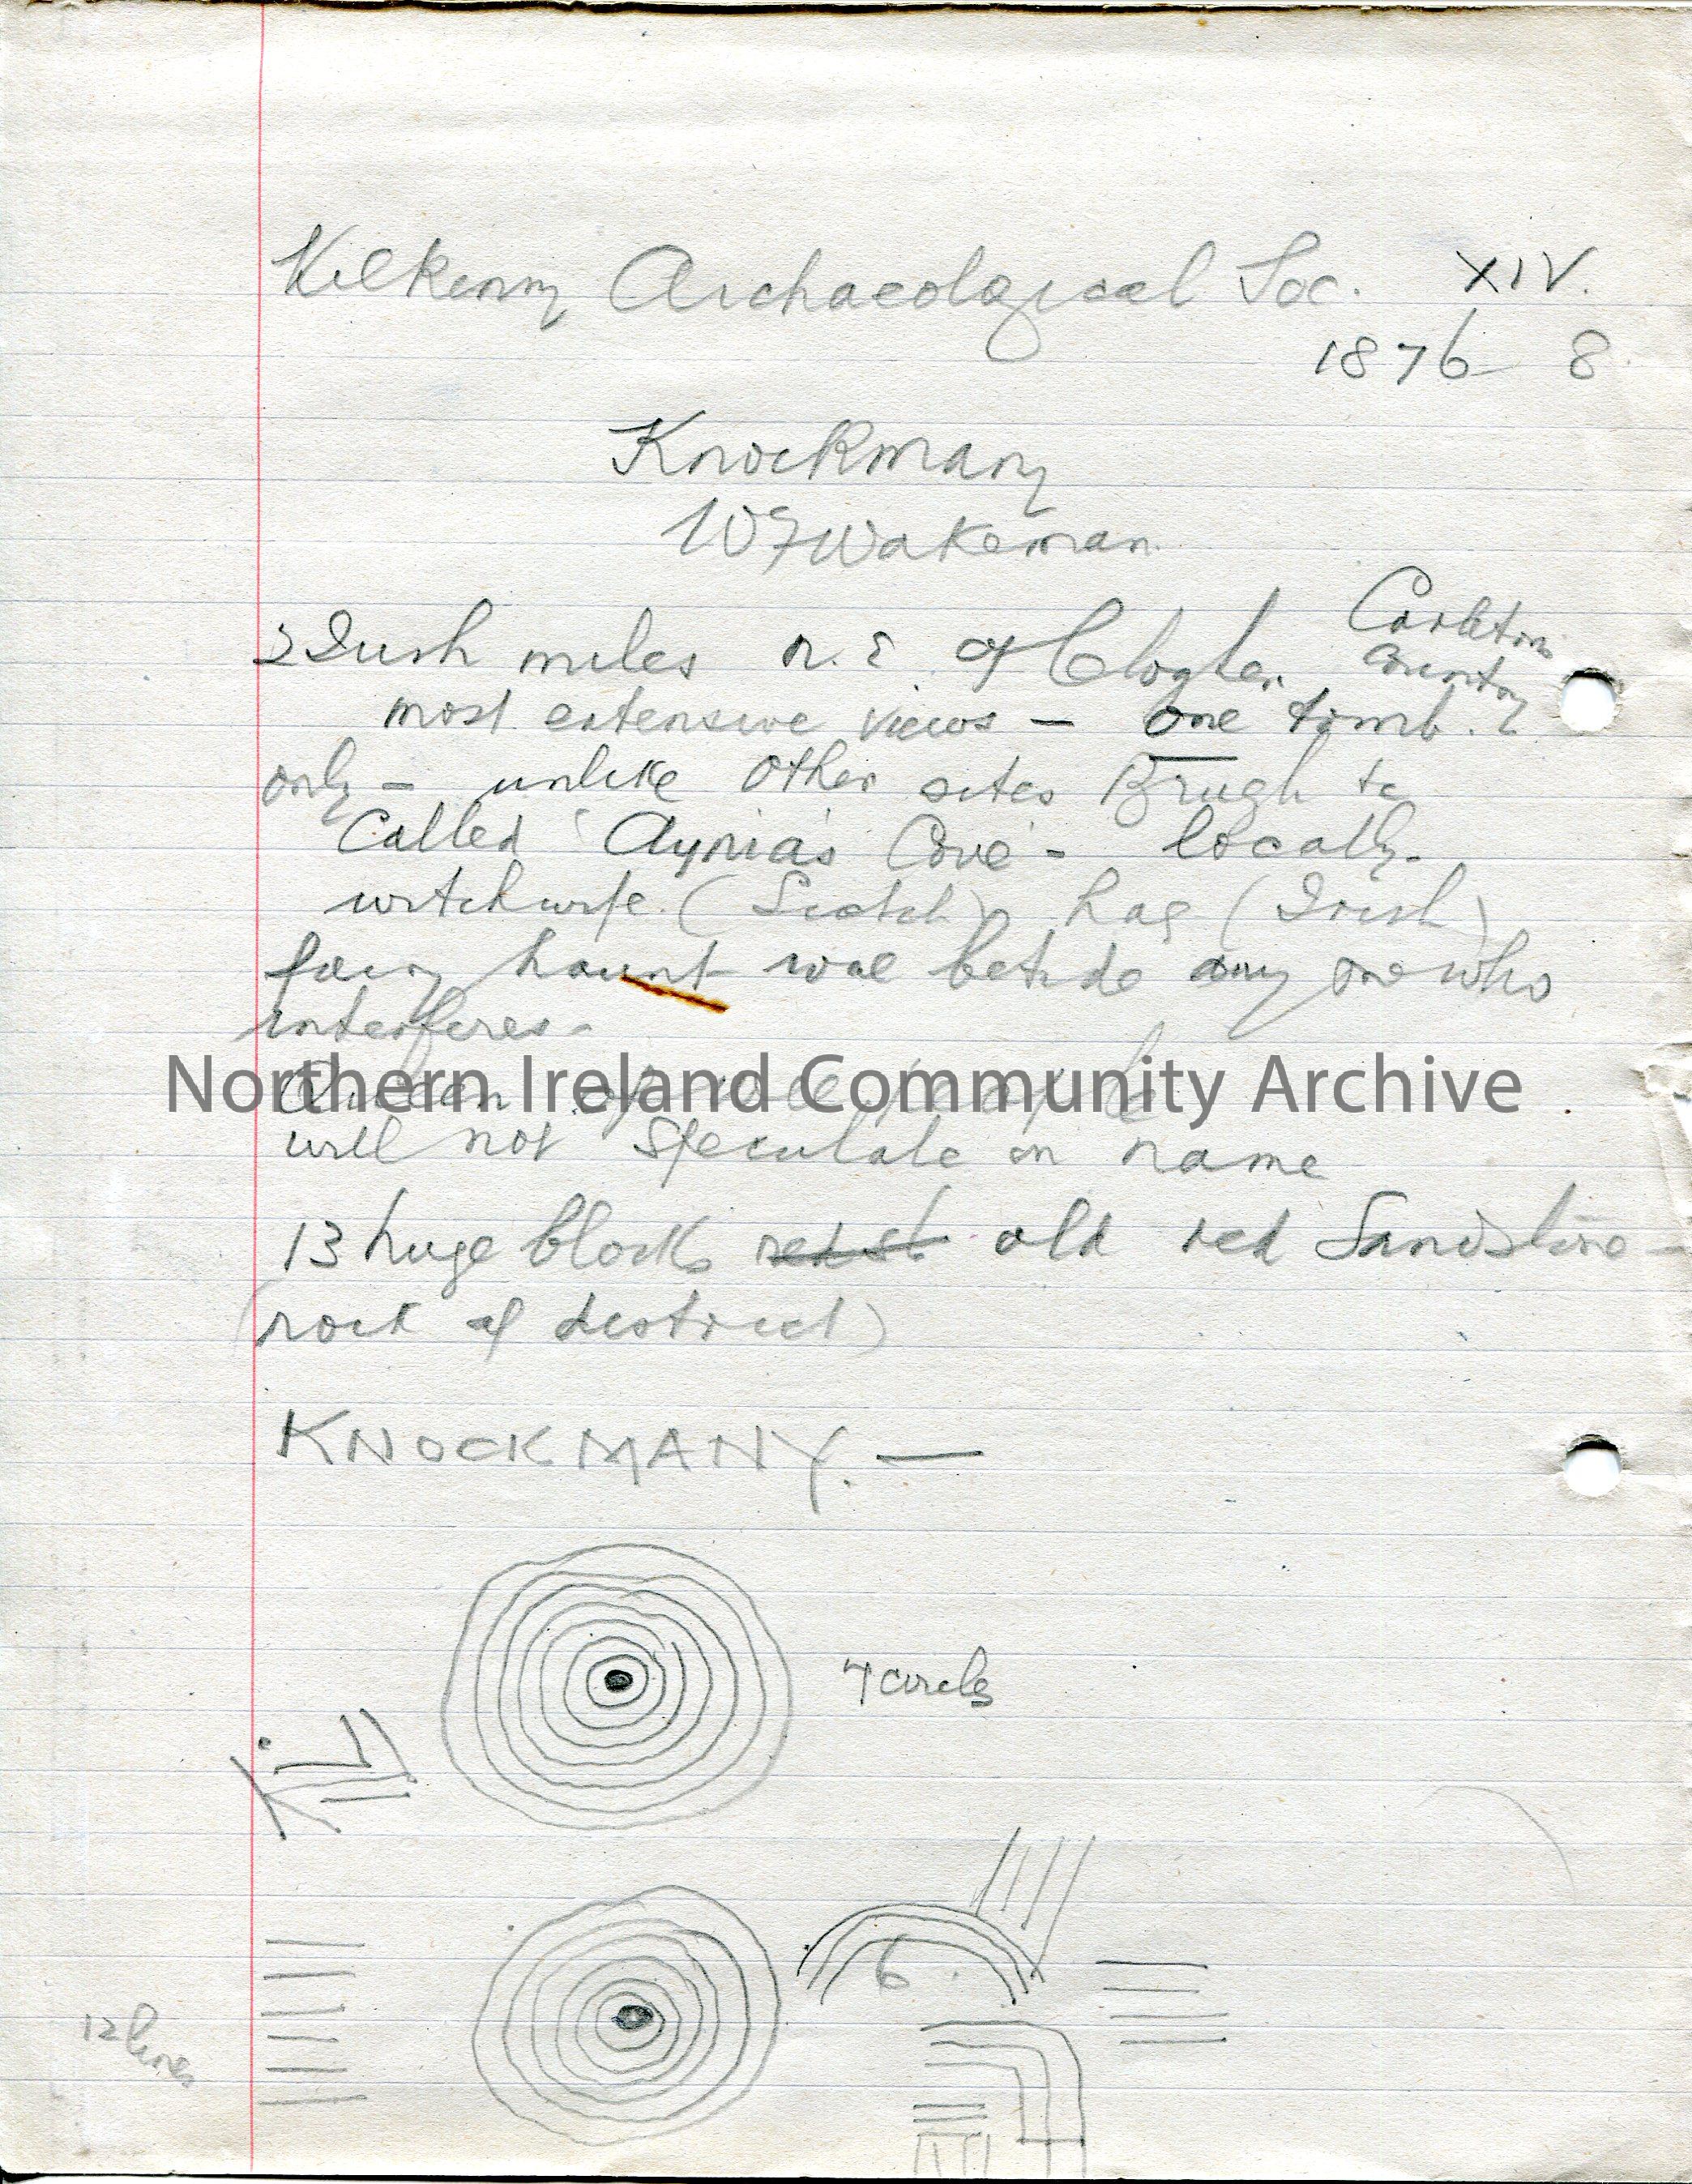 Kilkenny Archaeological Soc. XIV.
1876 8
Knockmany
W F Wakeman.
Irish miles N.E of Clogher. Carleton
country
most extensive views - one tomb.
only - unlike other sites Brugh
Called 'Aynia's Cove' - locally -
witchwife. (Scotch) hag (Irish)
fairy haunt woe betide any one who
interferes -
Queen of wee people
Northern Ireland Community Archive
will not speculate on name
13 huge blocks red st old red Sandstone -
(rock of district)
KNOCKMANY. —
7 circles
6
12 lines